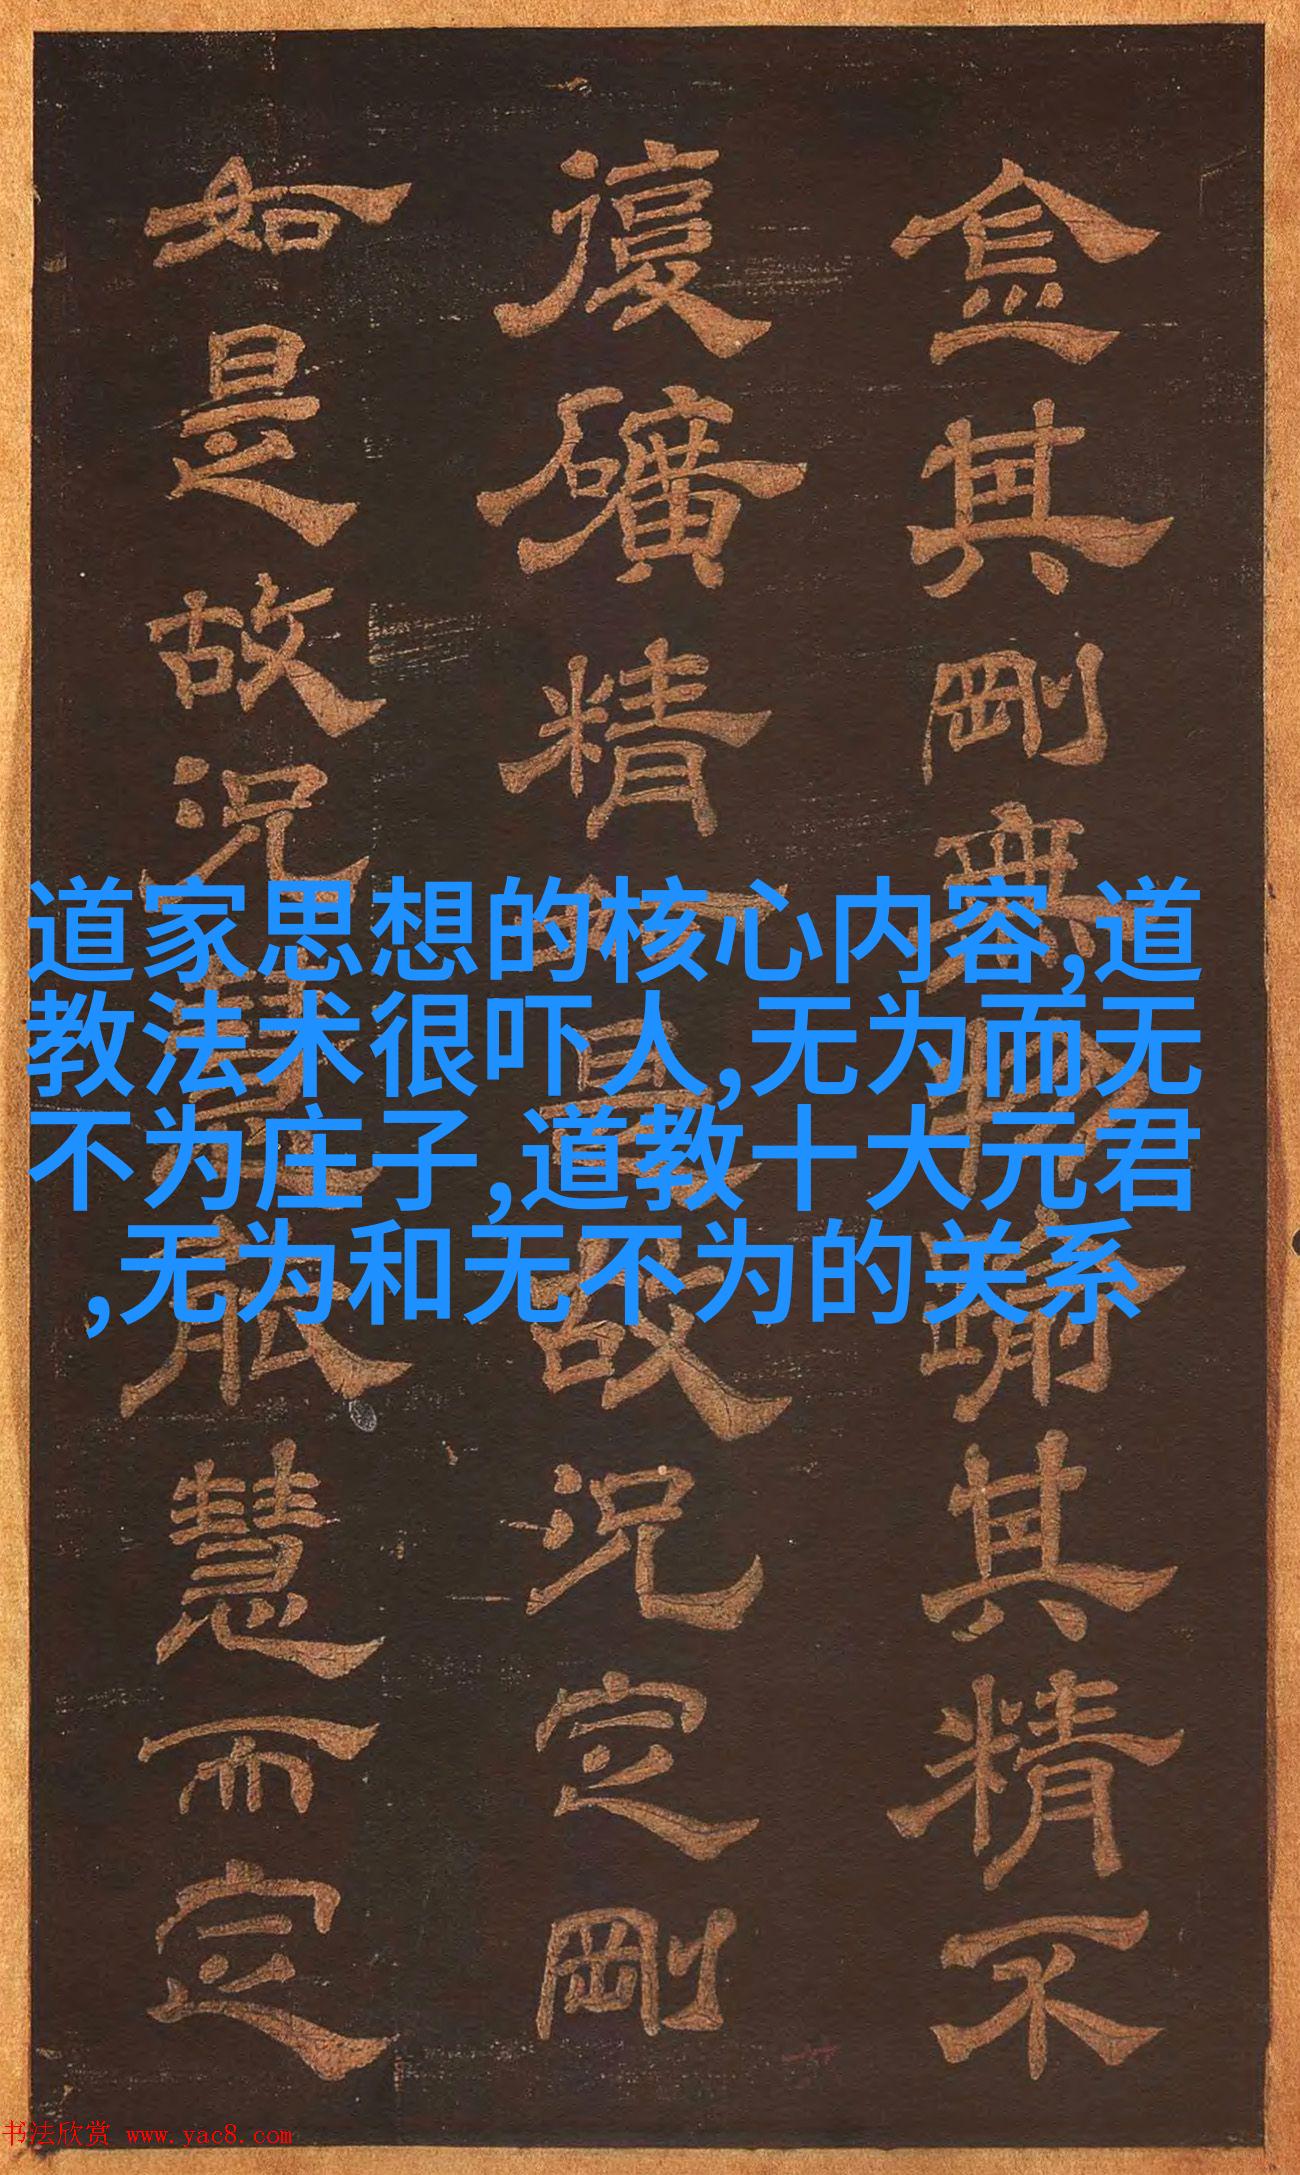 道家思想的核心内容,道
教法术很吓人,无为而无
不为庄子,道教十大元君
,无为和无不为的关系
金其剛無踰其精不
復礦精故況定剛
如是故況慧而定
书法欣赏 www.yac8.com